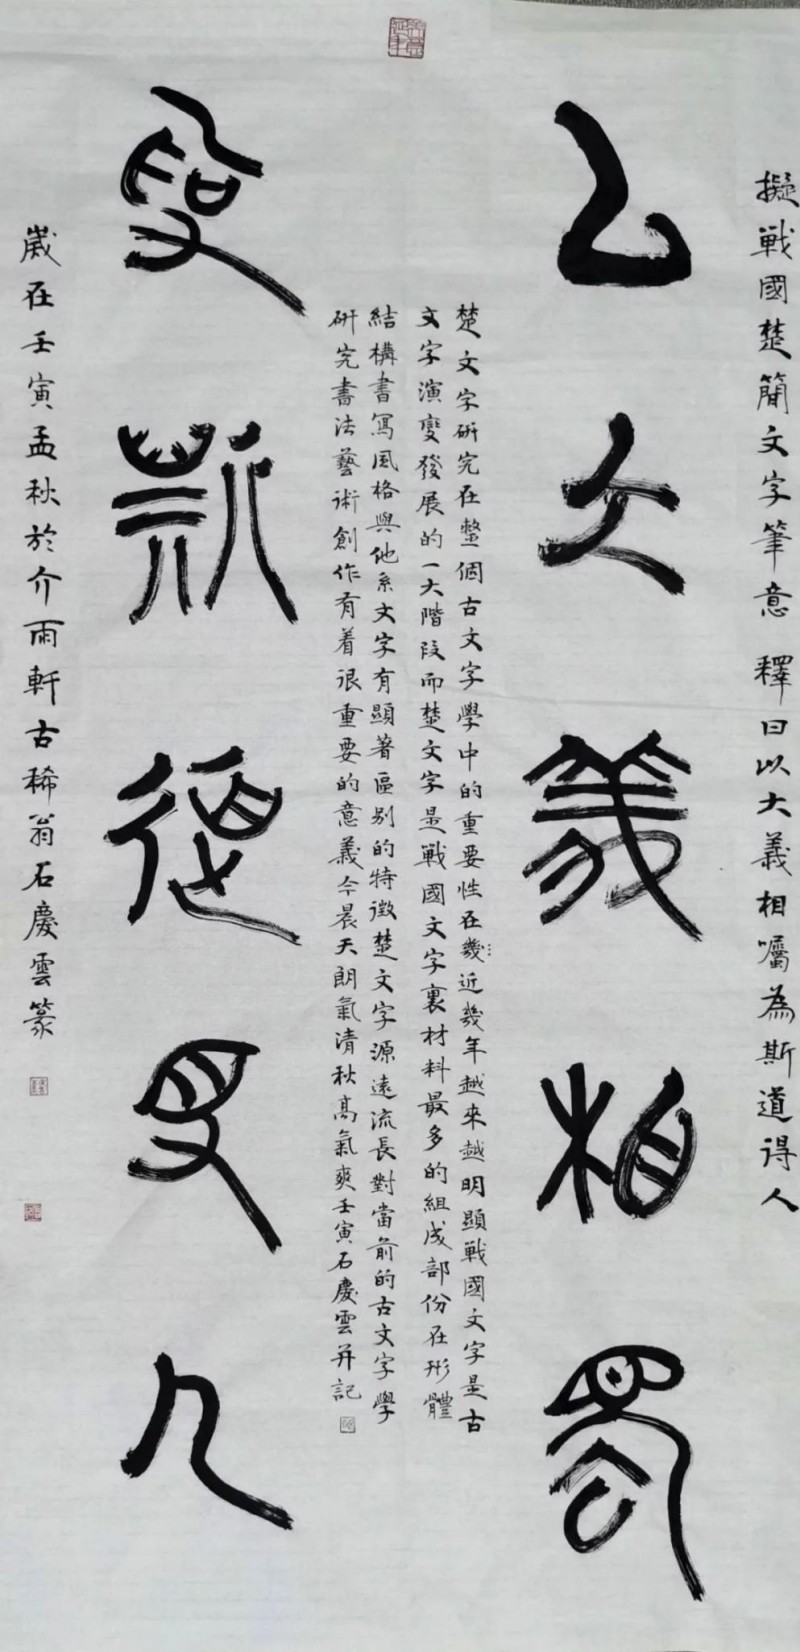 擬戰國楚簡文字筆意 釋曰以大義相囑為斯道得人
以大義相囑
楚文字研究在整個古文字學中的重要性在幾近幾年越來越明顯戰國文字是古
文字演變發展的一大階段而楚文字是戰國文字裏材料最多的組成部份在形體
結構書寫風格與他系文字有顯著區别的特徵楚文字源遠流長對當前的古文字學
研究書法藝術創作有着很重要的意義今晨天朗氣清秋高氣爽壬寅石慶雲并記
為斯道得人
歲在壬寅孟秋於介雨軒古稀翁石慶雲篆